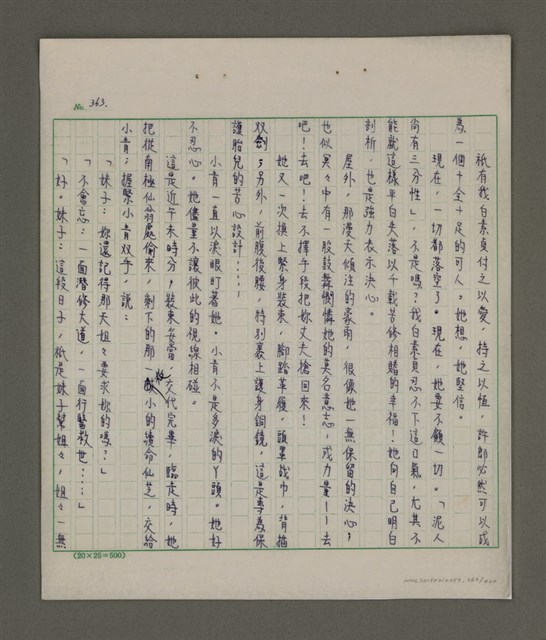 No. 363.
祇有我白素貞付之以愛，持之以恒，許郎必然可以成
為一個十全十足的可人。她想，她堅信。
現在，一切都落空了。現在，她要不顧一切。「泥人
尚有三分性」，不是嗎？我白素貞忍不下這口氣，尤其不
能就這樣平白失落以千載苦修相賭的幸福！她向自己明白
剖析，也是強力表示決心。
屋外，那漫天傾注的豪雨，很像她一無保留的決心；
也似冥々中有一股鼓舞憫憐她的莫名意志，或力量——去
吧！去吧！去不擇手段把妳丈夫搶回來！
她又一次換上緊身裝束，腳踏革履，頭單戰巾，背插
双劍；另外，前腹後腰，特別裹上護身銅鏡，這是專為保
護胎兒的苦心設計！……
小青一直以淚眼盯著她。小青不是多淚的丫頭。她好
不忍心。她儘量不讓彼此的視線相碰。
這是近午未時分，裝束妥當，交代完畢，臨走時，她
把從南極仙翁處偷來，剩下的那一枚小的續命仙芝，交給
小青；握緊小青双手，說：
「妹子：妳還記得那天姐々要求妳的嗎？」
「不會忘：一面潛修大道，一面行醫救世……」
「好。妹子：這段日子，祇是妹子幫姐々，姐々一無
(20×25=500)